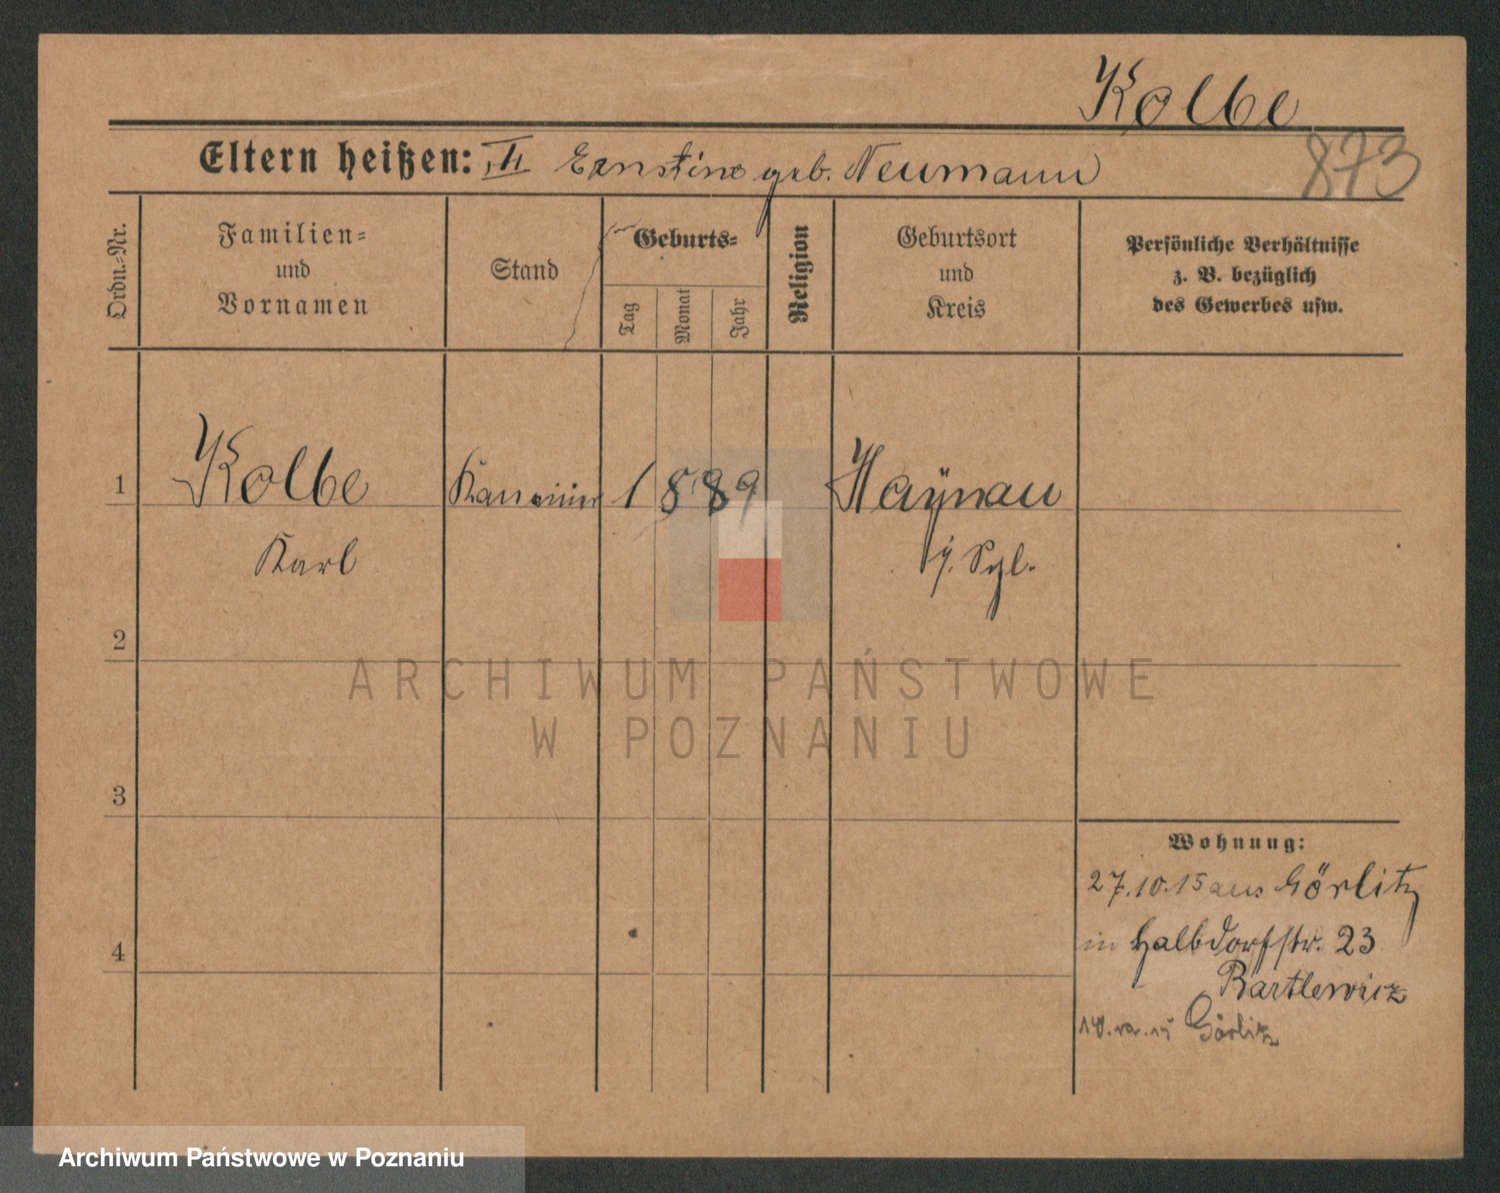 Kolbe
873
Eltern heißen: Ernstine geb. Neumann
Ordn.-Nr.
Familien-
und
Vornamen
Stand
Geburts-
Tag
Monat
Jahr
Religion
Geburtsort
und
Kreis
Persönliche Verhältnisse
z. B. bezüglich
des Gewerbes usw.
1
Kolbe
1889
Haynau
Karl
2
3
4
Wohnung:
27.10.15 aus Görlitz
in Halbdorfstr. 23
Bartlewicz
Görlitz
ARCHIWUM PAŃSTWOWE
W POZNANIU
Archiwum Państwowe w Poznaniu